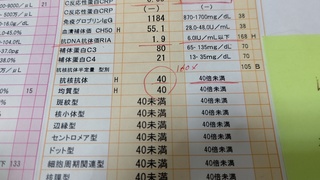 C反応性蛋白CRP
C反応性蛋白CRP
免疫グロブリンIgG 1184 870-1700mg/dL 38
血清補体価 CH50 H 55.1 28.0-48.0U/mL 38
抗DNA抗体価RIA 1.9 6.0IU/mL以下 168 H
補体蛋白C3 80 65-135mg/dL 70
補体蛋白C4 21 13-35mg/dL 70
抗核抗体半定量 型別 160< 105 B
抗核抗体 H 40 40倍未満
均質型 H 40 40倍未満
斑紋型 40未満 40倍未満
核小体型 40未満 40倍未満
辺縁型 40未満 40倍未満
セントロメア型 40未満 40倍未満
ドット型 40未満 40倍未満
細胞周期関連型 40未満 40倍未満
核膜型 40未満 40倍未満